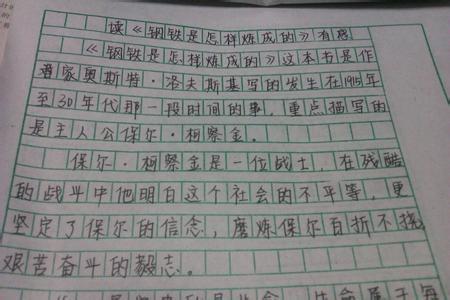 读《钢铁是怎样炼成的》有感
《钢铁是怎样炼成的》这本书是作
者家奥斯特·洛夫斯基写的发生在1915年
至30年代那一段时间的事，重点描写的
是主人公保尔·柯察金。
保尔·柯察金是一位战士，在残酷
的战斗中他明白这个社会的不平等，更
坚定了保尔的信念，磨炼保尔百折不挠，
艰苦奋斗的毅志。